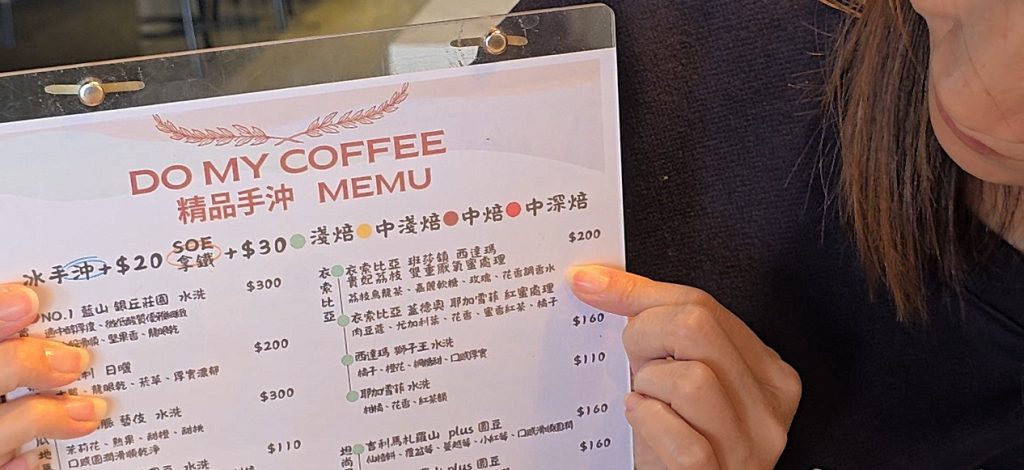 DO MY COFFEE
精品手沖 MEMU
冰手沖+$20 SOE拿鐵+$30 淺焙 中淺焙 中焙 中深焙
NO.1 藍山 銀丘莊園 水洗 $300
$200
日曬
龍眼乾、菸草、厚實濃郁
$300
藝伎 水洗
茉莉花、熱果、甜橙、甜桃
口感圓潤滑順乾淨
$110
水洗
衣索比亞
衣索比亞 班莎鎮 西達瑪 $200
貴妃荔枝 雙重厭氧蜜處理
荔枝烏龍茶、嘉麗軟糖、玫瑰、花香調香水
衣索比亞 蓋德奧 耶加雪菲 紅蜜處理
肉豆蔻、尤加利葉、花香、蜜香紅茶、橘子
$160
西達瑪 獅子王 水洗
橘子、橙花、蜩糖甜、口感厚實
$110
耶加雪菲 水洗
柑橘、花香、紅茶韻
坦尚
吉利馬札羅山 plus 圓豆 $160
小紅莓、口感滑順圓潤
山 plus 圓豆 $160